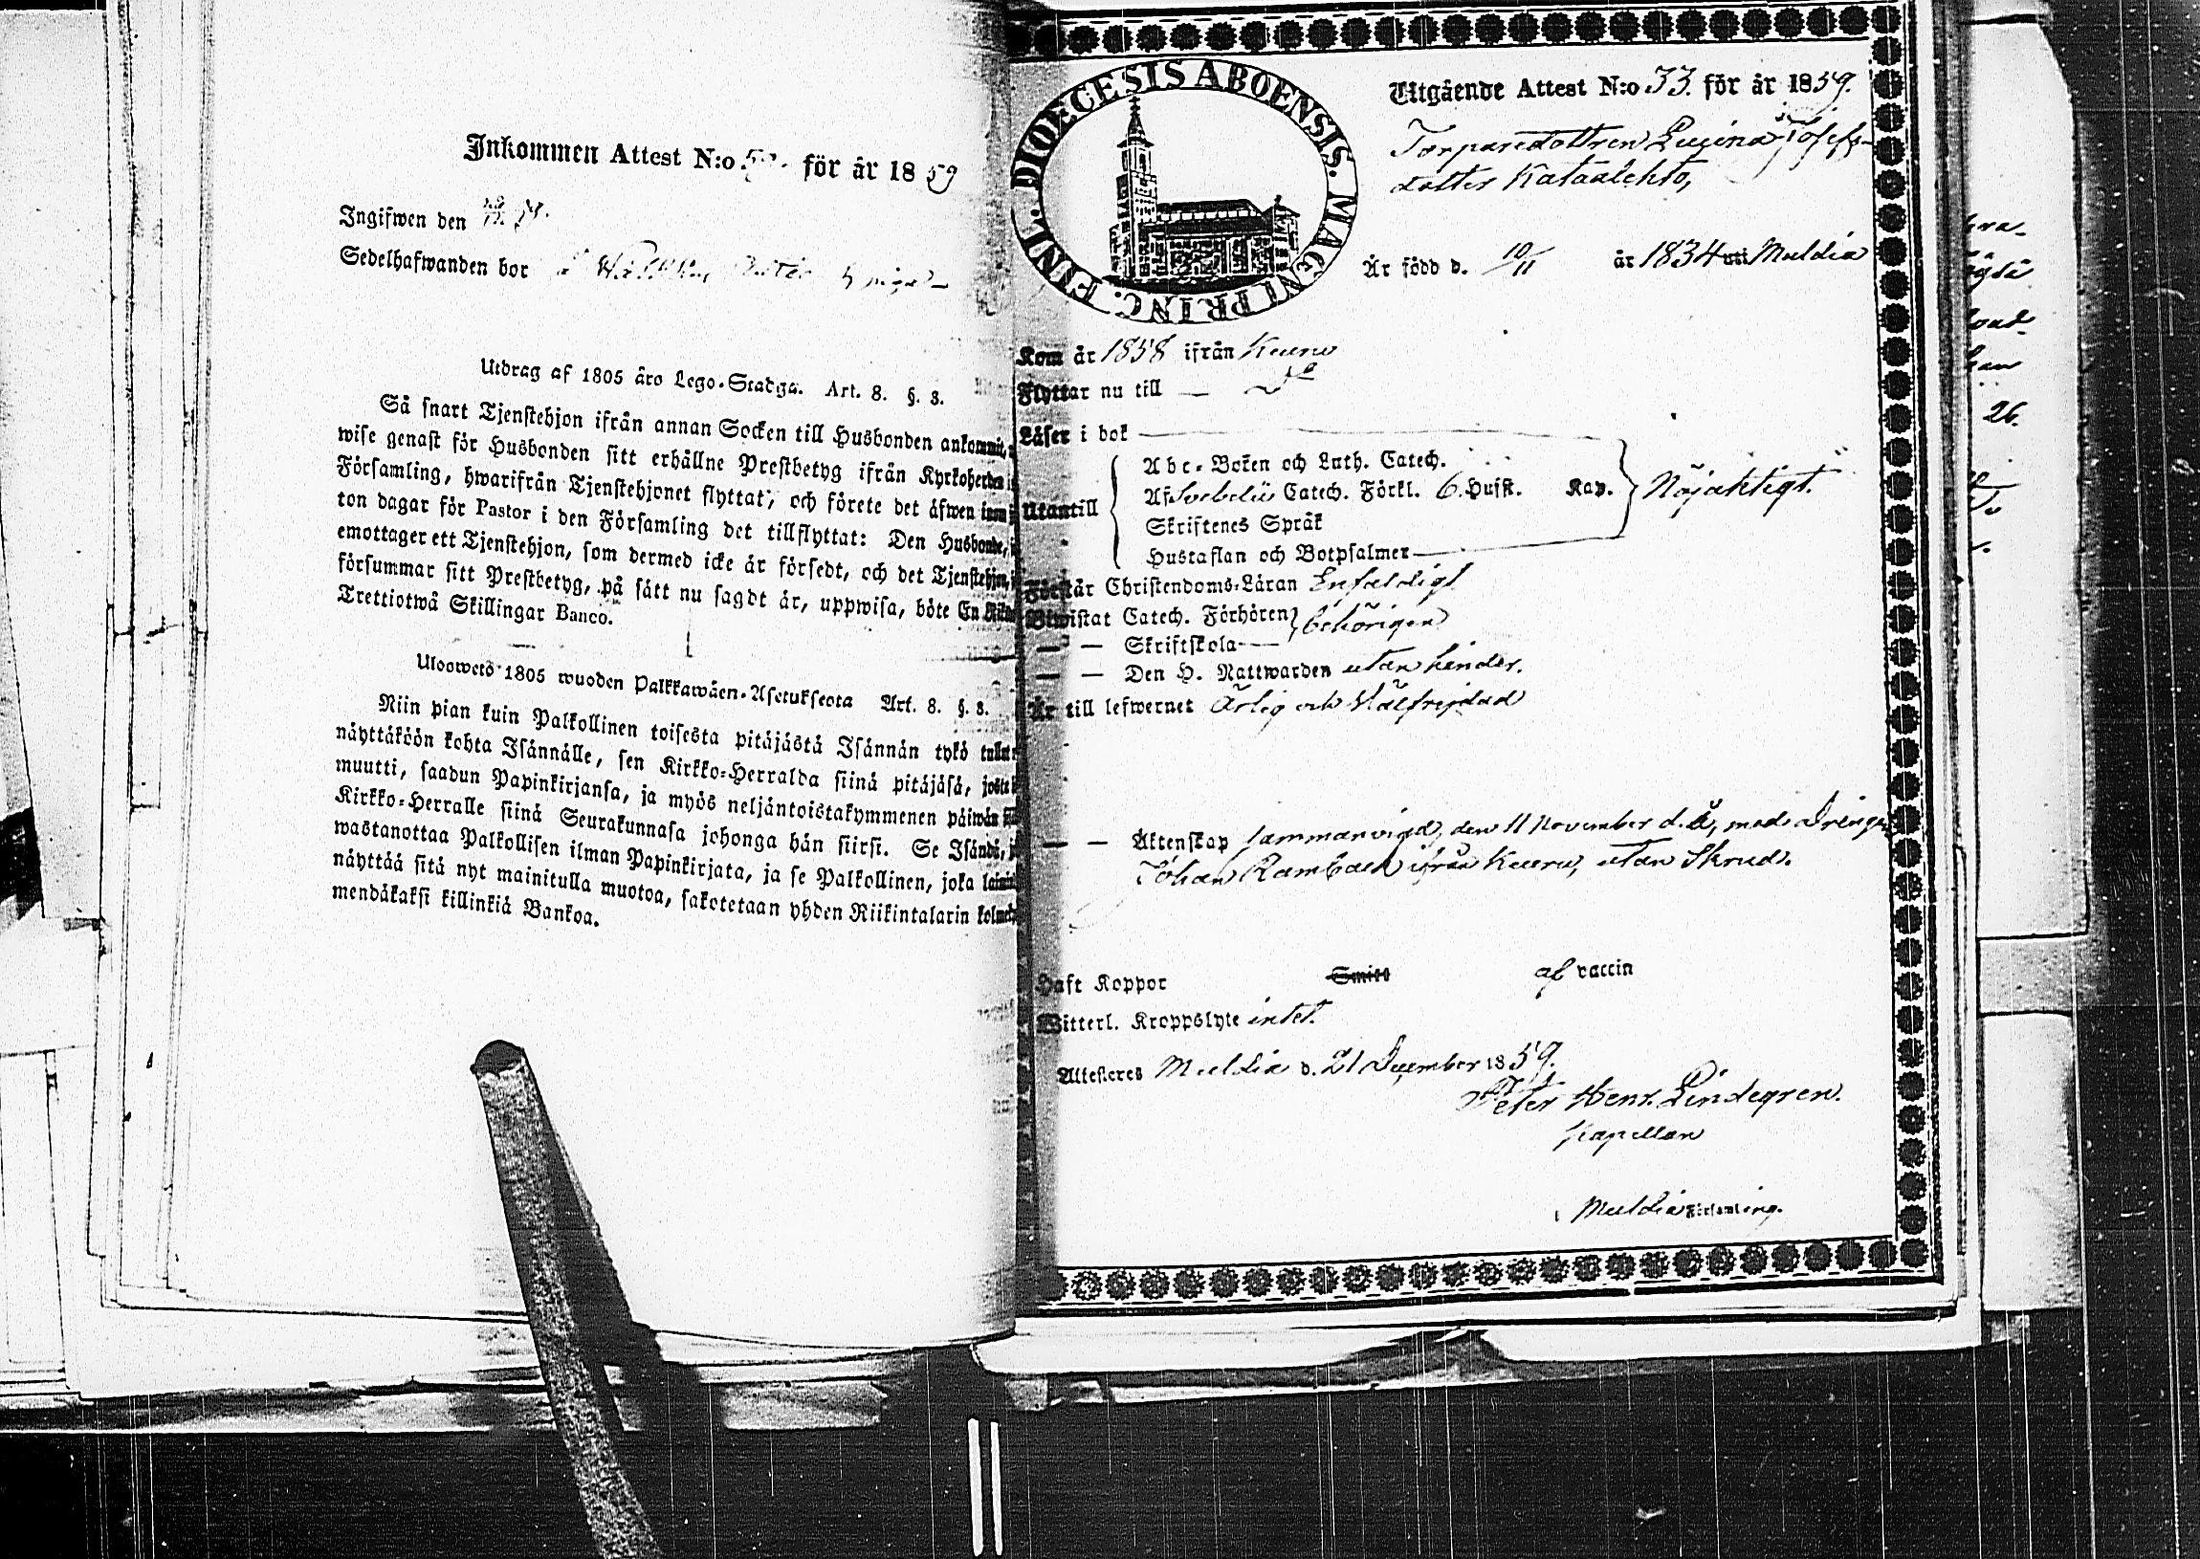 Inkommen Attest N:o för år 1859
Ingifwen den
Sedelhafwanden bor
Utdrag af 1805 åro Lego-Stadga. Art. 8. §. 8.
Så snart Tjenstehjon ifrån annan Socken till Husbonden ankommit,
wise genast för Husbonden sitt erhållne Prestbetyg ifrån Kyrkoherden i
Församling, hwarifrån Tjenstehjonet flyttat, och förete det äfwen inom
ton dagar för Pastor i den Församling det tillflyttat: Den Husbonde,
emottager ett Tjenstehjon, som dermed icke är försedt, och det Tjenstehjon,
försummar sitt Prestbetyg, på sätt nu sagdt är, uppwisa, böte En
Trettiotwå Skillingar Banco.
Uloowetö 1805 wuoden Palkkawäen-Asetukseota Art. 8. §. 8.
Niin pian kuin Palkollinen toisesta pitäjästä Isännän tykö
näyttäköön kohta Isännälle, sen Kirkko-Herralda siinä pitäjäsä,
muutti, saadun Papinkirjansa, ja myös neljäntoistakymmenen päiwän
Kirkko-Herralle siinä Seurakunnasa johonga hän siirsi. Se Isändä,
wastanottaa Palkollisen ilman Papinkirjata, ja se Palkollinen, joka
näyttää sitä nyt mainitulla muotoa, sakotetaan yhden Riikintalarin
mendäkaksi killinkiä Bankoa.
FINL. DIOECESIS ABOENSIS. MAGNI PRINC.
Utgående Attest N:o 33. för år 1859.
Torparedottren Lucina Josefs-
dotter Kataalehto,
Är född d. 10/11 år 1834 uti Muldia
Kom år 1858 ifrån Keuru
Flyttar nu till — Do
Läser i bok
Abc-Boken och Luth. Catech.
Utantill Af Svebelii Catech. Förkl. 6. Hufst. Kap. Nöjaktigt.
Skriftenes Språk
Hustaflan och Botpsalmer
Förstår Christendoms-Läran Enfaldigt
Biwistat Catech. Förhören behörigen
— — Skriftskola
— — Den H. Nattwarden utan hinder.
Är till lefwernet Ärlig och Välfrejdad
— — Äktenskap sammanvigd, den 11 November d. å, med Drengen
Johan Ramback ifrån Keuru, utan Skrud.
Haft Koppor Smitt af vaccin
Witterl. Kroppslyte intet.
Attesteres Muldia d. 21 December 1859.
Peter Henr. Lindegren.
Kapellan
i Muldia Församling.